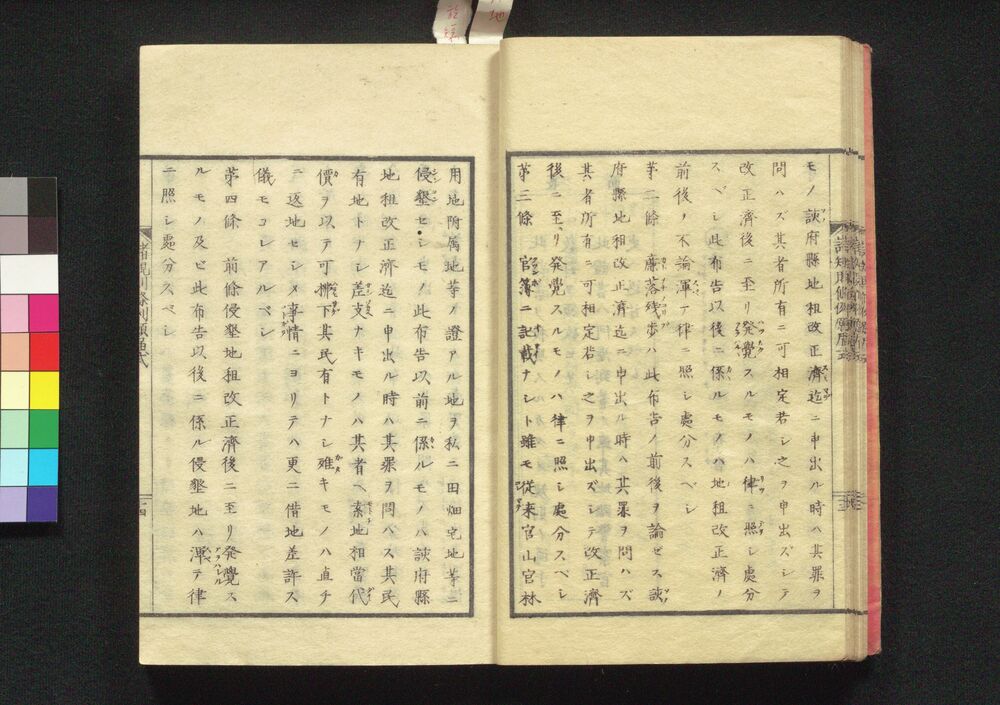 モノ該府縣地租改正濟迄ニ申出ル時ハ其罪ヲ
問ハズ其者所有ニ可相定若シ之ヲ申出ズシテ
改正濟後ニ至リ発覺スルモノハ律ニ照シ處分
スベシ此布告以後ニ係ルモノハ地租改正濟ノ
前後ヲ不論渾テ律ニ照シ處分スベシ
第二條 廉落残歩ハ此布告ノ前後ヲ論ゼス該
府縣地租改正濟迄ニ申出ル時ハ其罪ヲ問ハズ
其者所有ニ可相定若シ之ヲ申出ズシテ改正濟
後ニ至リ発覺スルモノハ律ニ照シ處分スベシ
第三條 官簿ニ記載ナシト雖モ従来官山官林
用地附属地等ノ證アル地ヲ私ニ田畑宅地等ニ
侵墾セシモノ此布告以前ニ係ルモノハ該府縣
地租改正濟迄ニ申出ル時ハ其罪ヲ問ハス其民
有地トナシ差支ナキモノハ其者ヘ素地相當代
價ヲ以テ可拂下其民有トナシ難キモノハ直チ
ニ返地セシメ事情ニヨリテハ更ニ借地差許ス
儀モコレアルベシ
第四條 前條侵墾地租改正濟後ニ至リ発覺ス
ルモノ及ビ此布告以後ニ係ル侵墾地ハ渾テ律
ニ照シ處分スベシ